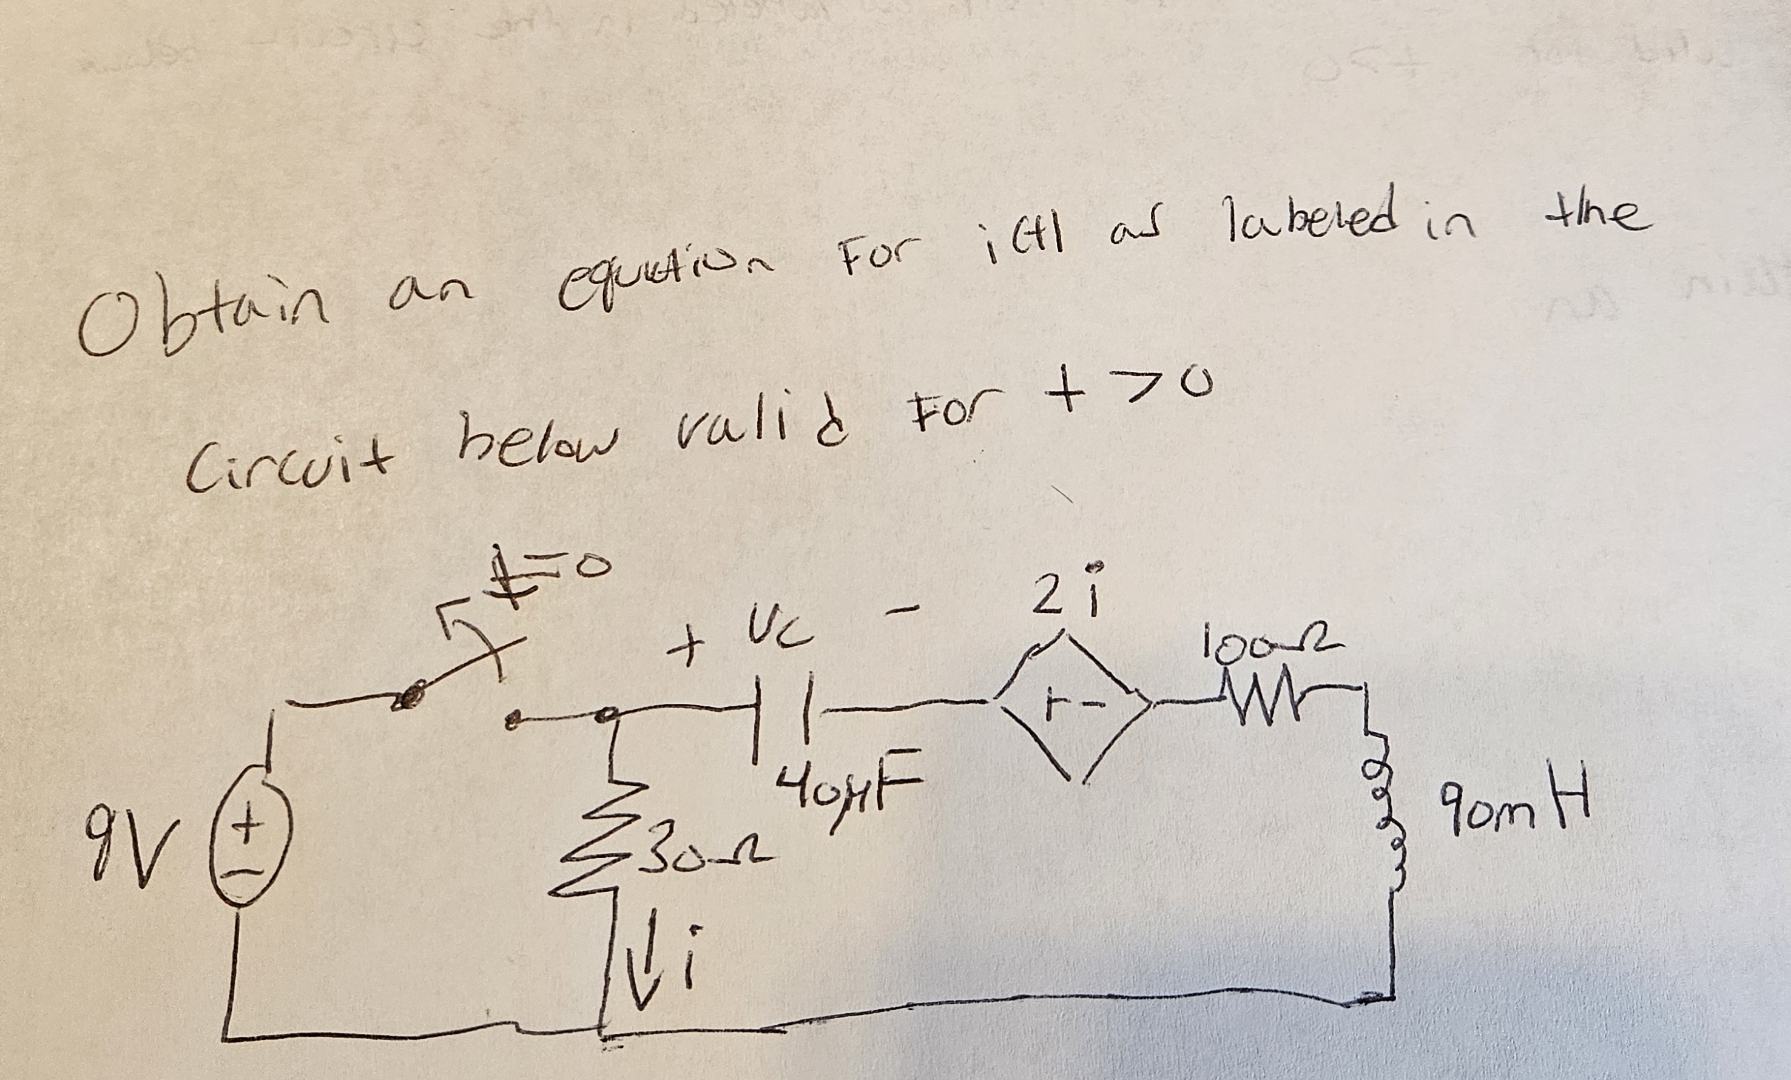 Obtain an equation For i(t) as labeled in the
Circuit below valid For t > 0
t=0
+ Vc -
2i
100Ω
+ -
40μF
9V
+
-
30Ω
90mH
i